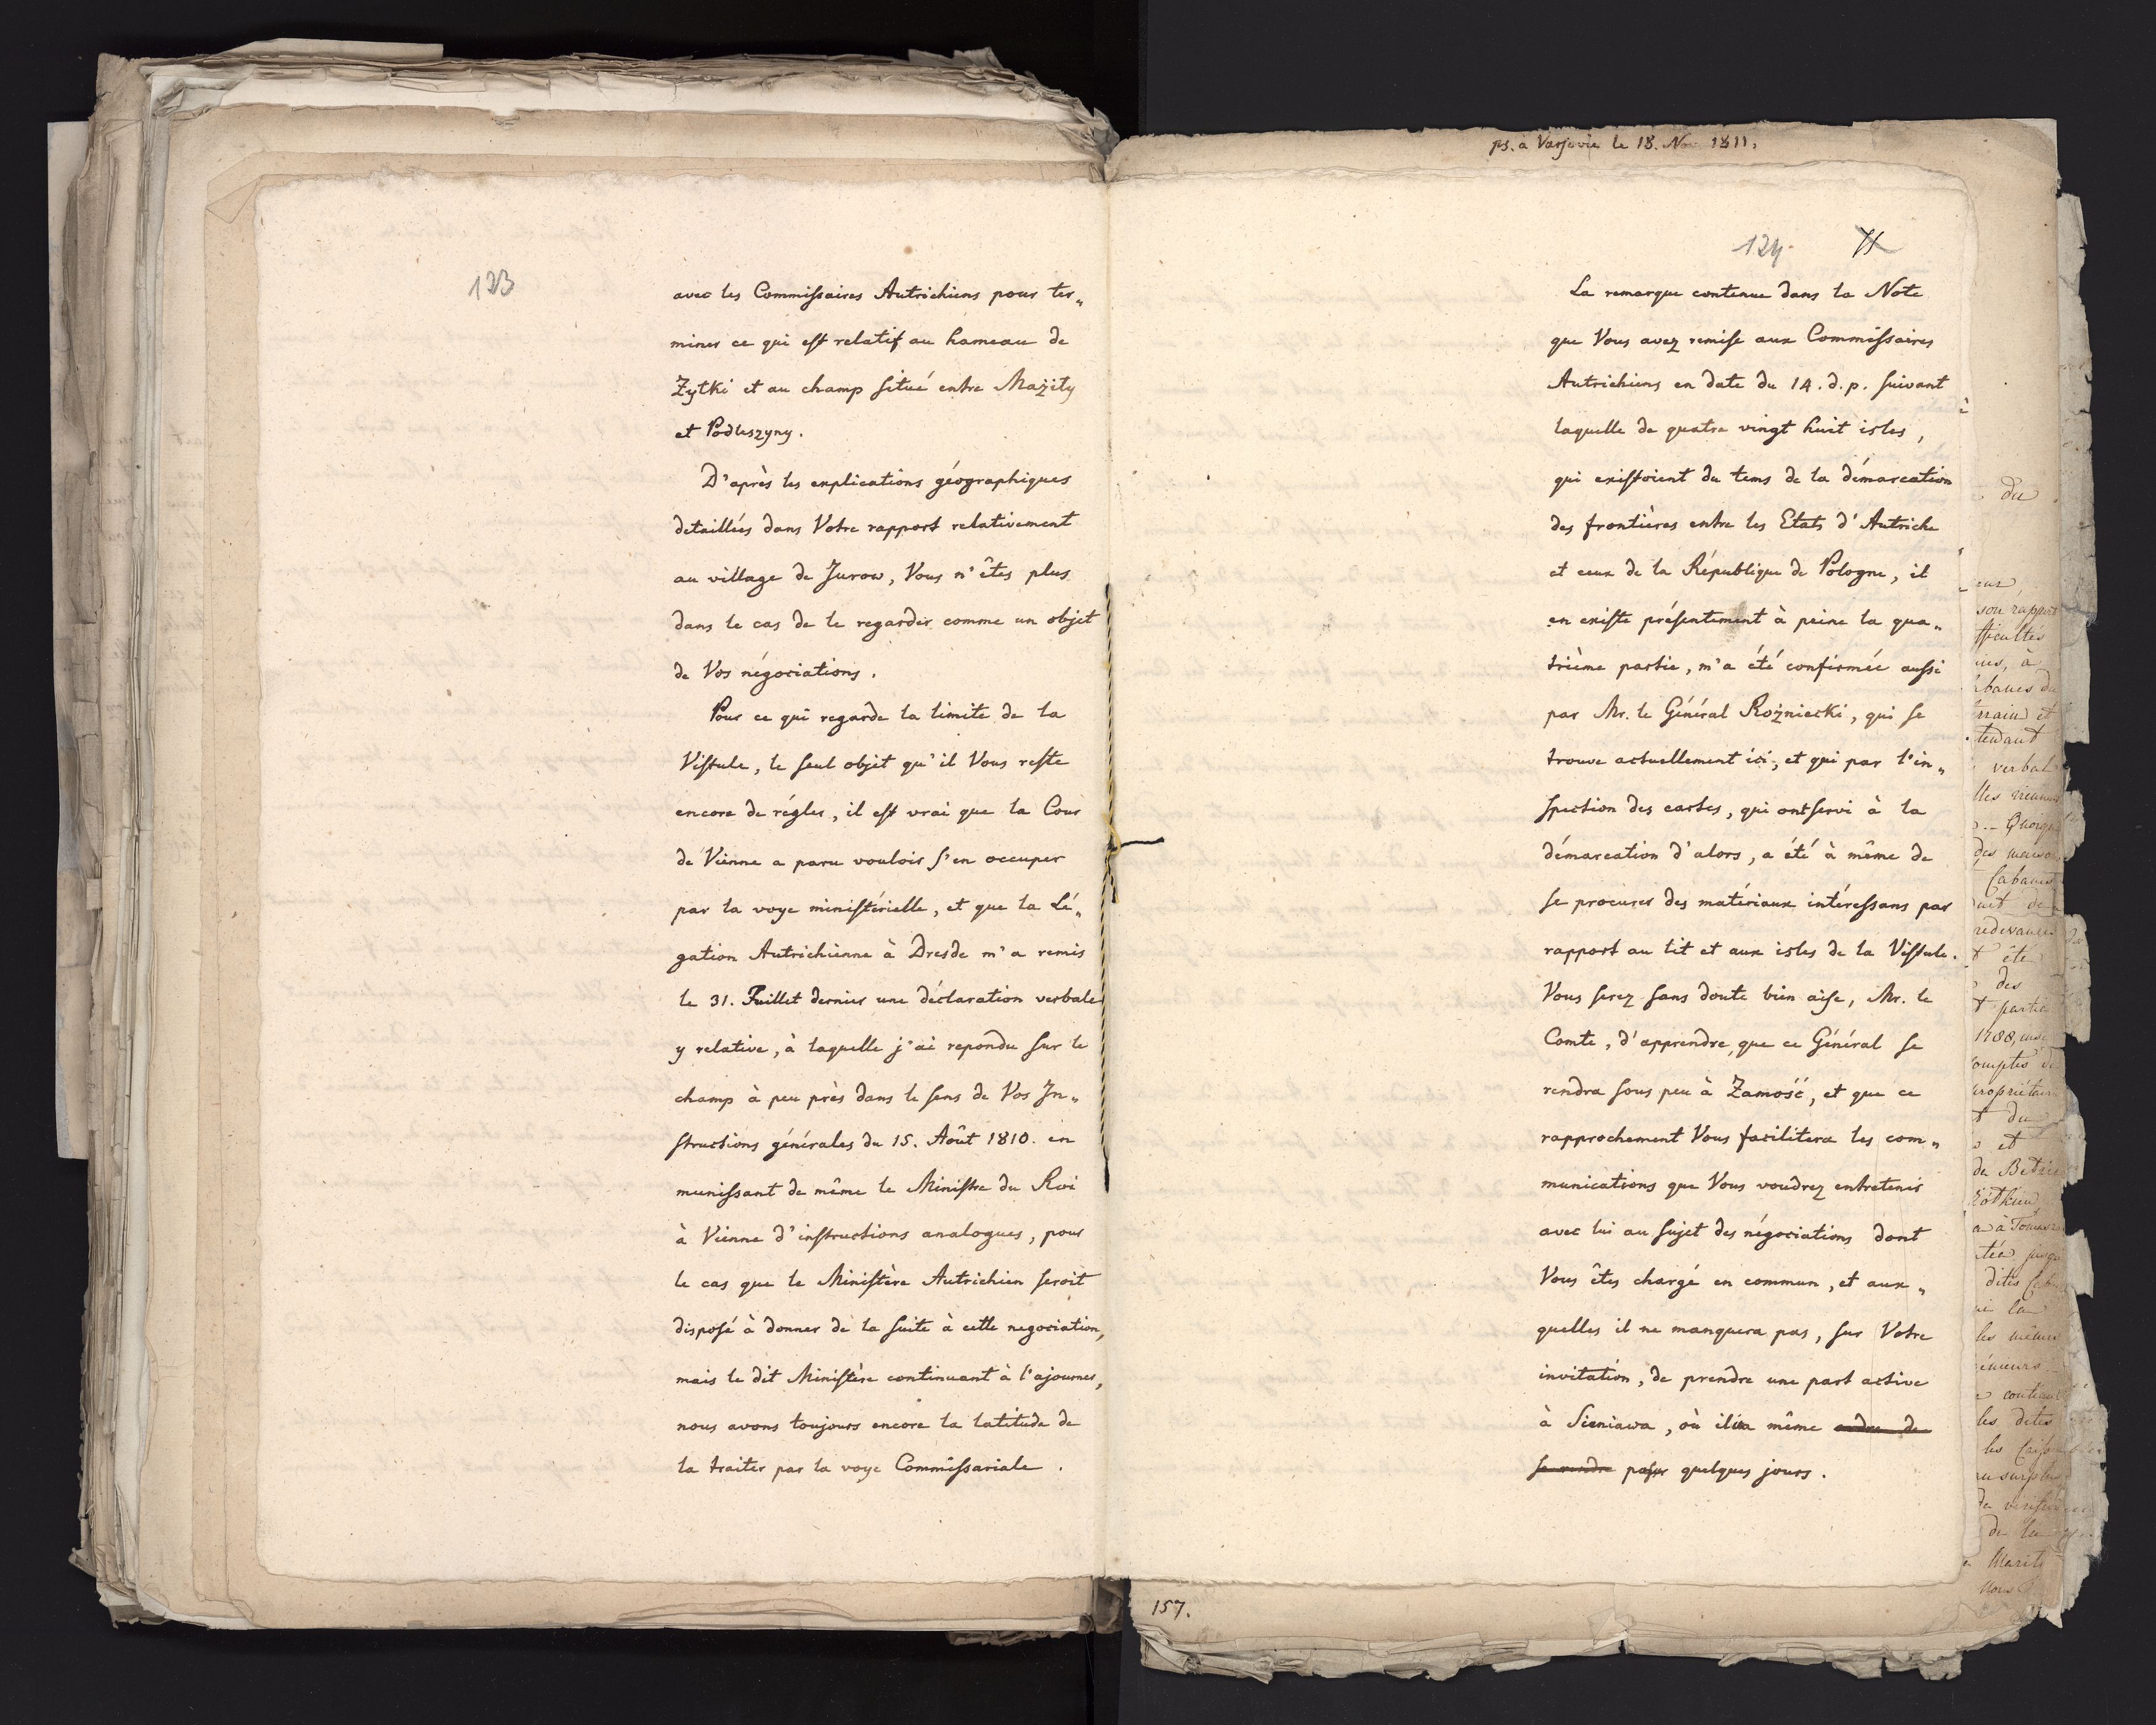 123
avec les Commissaires Autrichiens pour ter„
miner ce qui est relatif au hameau de
Zytki et au champ situé entre Mażiły
et Podleszyny.
D'après les explications géographiques
detaillées dans Votre rapport relativement
au village de Jurow, Vous n'êtes plus
dans le cas de le regarder comme un objet
de Vos négociations.
Pour ce qui regarde la limite de la
Vistule, le seul objet qu'il Vous reste
encore de régler, il est vrai que la Cour
de Vienne a paru vouloir s'en occuper
par la voye ministérielle, et que la Lé„
gation Autrichienne à Dresde m'a remis
le 31. Juillet dernier une déclaration verbale
y relative, à laquelle j'ai repondu sur le
champ à peu près dans le sens de Vos In„
structions générales du 15. Août 1810. en
munissant de même le Ministre du Roi
à Vienne d'instructions analogues, pour
le cas que le Ministère Autrichien seroit
disposé à donner de la suite à cette negociation,
mais le dit Ministère continuant à l'ajourner,
nous avons toujours encore la latitude de
la traiter par la voye Commissariale.
ps. à Varsovie le 18. Nov 1811.
124.
La remarque contenue dans la Note
que Vous avez remise aux Commissaires
Autrichiens en date du 14. d. p. suivant
laquelle de quatre vingt huit isles,
qui existoient du tems de la démarcation
des frontières entre les Etats d'Autriche
et ceux de la République de Pologne, il
en existe présentement à peine la qua„
trième partie, m'a été confirmée aussi
par Mr. le Général Rożniecki, qui se
trouve actuellement ici, et qui par l'in„
spection des cartes, qui ont servi à la
démarcation d'alors, a été à même de
se procurer des matériaux intéressans par
rapport au lit et aux isles de la Vistule.
Vous serez sans doute bien aise, Mr. le
Comte, d'apprendre, que ce Général se
rendra sous peu à Zamość, et que ce
rapprochement Vous facilitera les com„
munications que Vous voudrez entretenir
avec lui au sujet des négociations dont
Vous êtes chargé en commun, et aux„
quelles il ne manquera pas, sur Votre
invitation, de prendre une part active
à Sieniawa, où il ira même
se rendre passer quelques jours.
157.
du
son rapport
fficultés
rrain et
tendant
verbal
des maisons
été
des
partie
1788,
du
et
les mêmes
les dites
de la